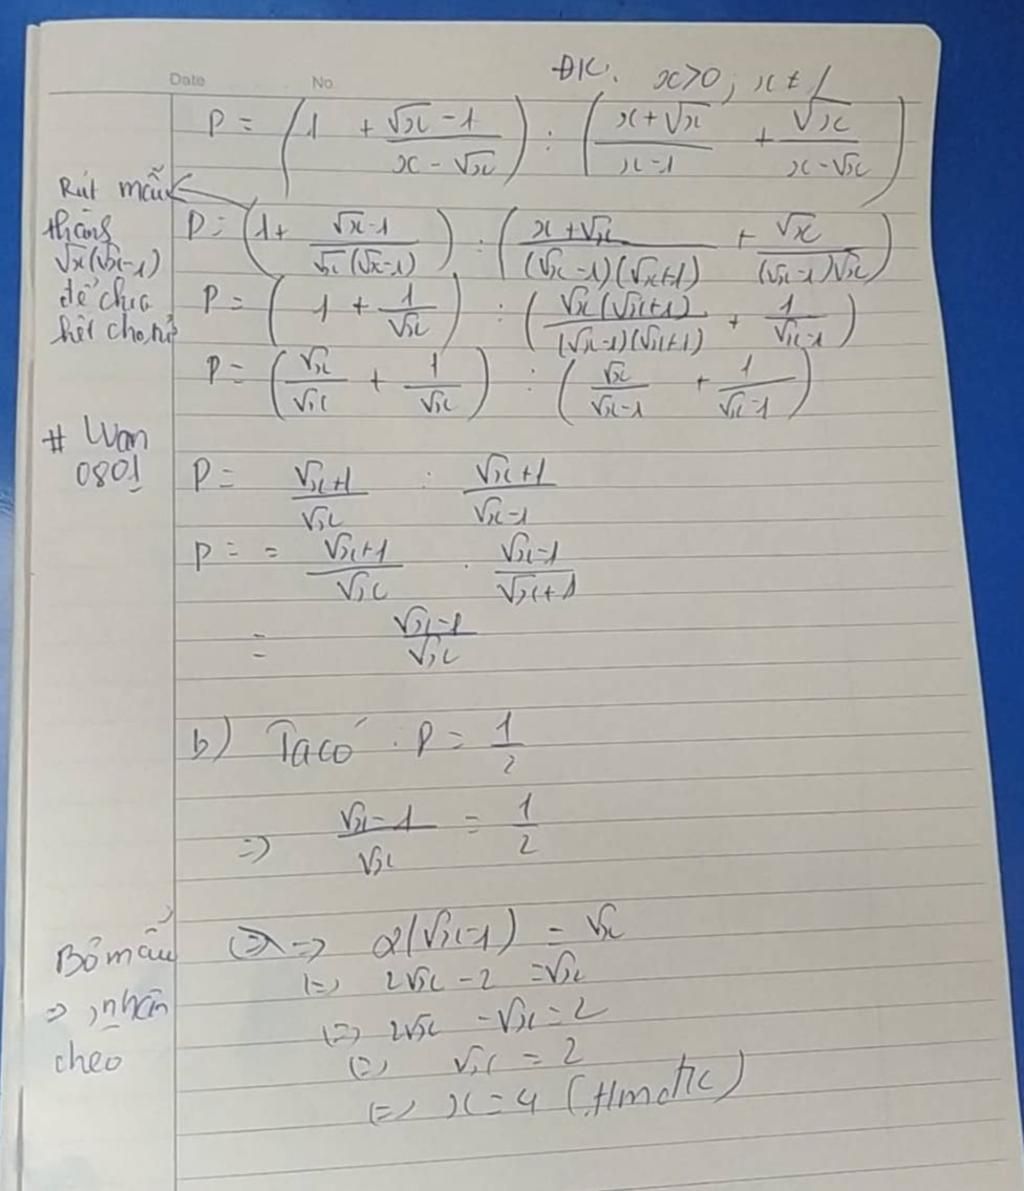 Date No
ĐK. x>0; x ≠ 1
P = (1 + (√x - 1)/(x - √x)) : ((x+√x)/(x-1) + √x/(x-√x))
Rút mẫu
thàng
√x(√x-1)
để chia
hết cho
P= (1+ (√x-1)/(√x(√x-1))) : ((x+√x)/((√x-1)(√x+1)) + √x/((√x-1)√x))
P = (1 + 1/√x) : (√x(√x+1)/((√x-1)(√x+1)) + 1/(√x-1))
P = (√x/√x + 1/√x) : (√x/(√x-1) + 1/(√x-1))
# Wan
0801
P = (√x+1)/√x : (√x+1)/(√x-1)
P = = (√x+1)/√x . (√x-1)/(√x+1)
= (√x-1)/√x
b) Ta có . P = 1/2
=> (√x-1)/√x = 1/2
Bỏ mẫu
=> nhân
cheo
=> 2(√x-1) = √x
(=) 2√x - 2 = √x
(=) 2√x - √x = 2
(=) √x = 2
(=) x = 4 (tlmđk)